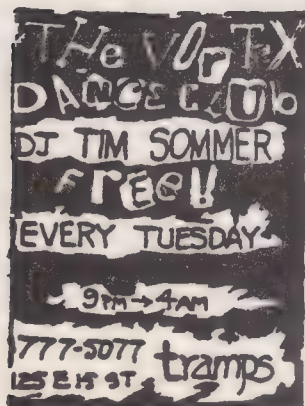 THe VOrTeX
DANCE CLUb
DJ TIM SOMMER
FREE!!
EVERY TUESDAY
9PM→4AM
777-5077
125 E 15 ST tramps